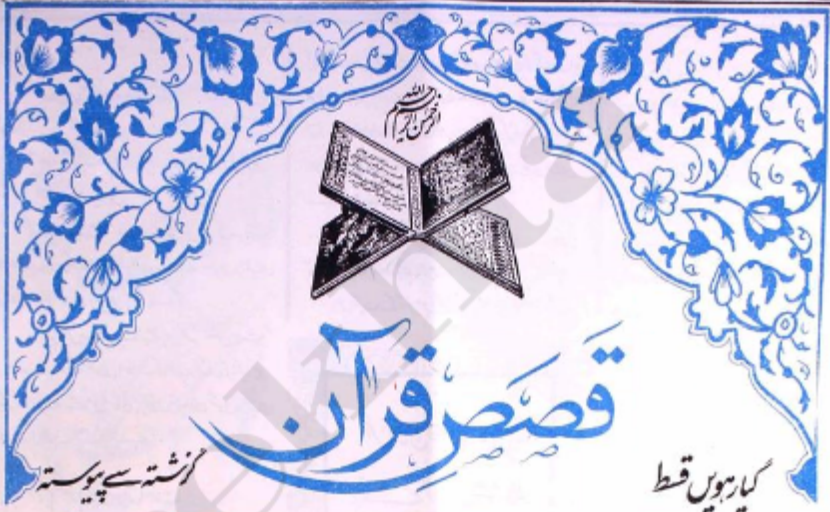 بسم اللہ الرحمن الرحیم
قصص قرآن
گیارہویں قسط
گزشتہ سے پیوستہ